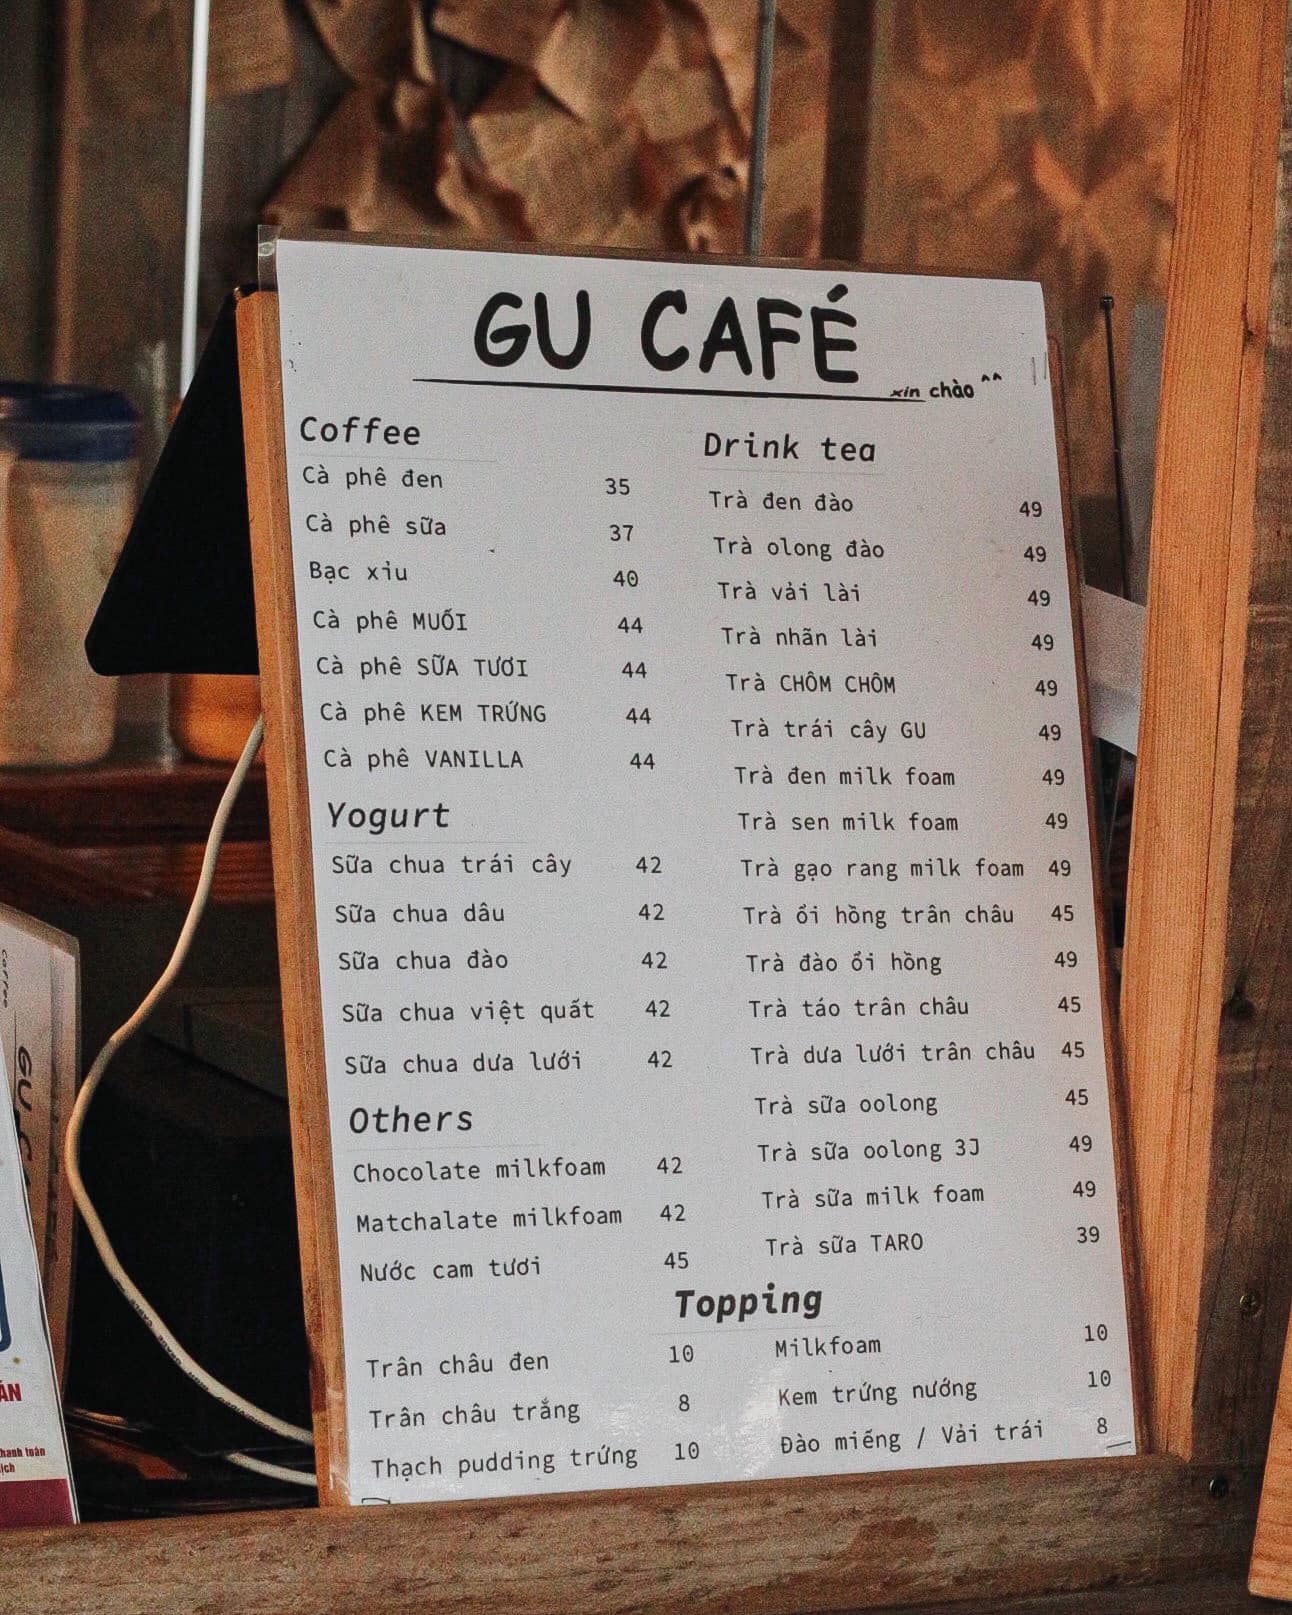 GU CAFÉ
xin chào ^^
Coffee
Cà phê đen 35
Cà phê sữa 37
Bạc xỉu 40
Cà phê MUỐI 44
Cà phê SỮA TƯƠI 44
Cà phê KEM TRỨNG 44
Cà phê VANILLA 44
Yogurt
Sữa chua trái cây 42
Sữa chua dâu 42
Sữa chua đào 42
Sữa chua việt quất 42
Sữa chua dưa lưới 42
Others
Chocolate milkfoam 42
Matchalate milkfoam 42
Nước cam tươi 45
Drink tea
Trà đen đào 49
Trà olong đào 49
Trà vải lài 49
Trà nhãn lài 49
Trà CHÔM CHÔM 49
Trà trái cây GU 49
Trà đen milk foam 49
Trà sen milk foam 49
Trà gạo rang milk foam 49
Trà ổi hồng trân châu 45
Trà đào ổi hồng 49
Trà táo trân châu 45
Trà dưa lưới trân châu 45
Trà sữa oolong 45
Trà sữa oolong 3J 49
Trà sữa milk foam 49
Trà sữa TARO 39
Topping
Trân châu đen 10
Trân châu trắng 8
Thạch pudding trứng 10
Milkfoam 10
Kem trứng nướng 10
Đào miếng / Vải trái 8
Coffee
GU